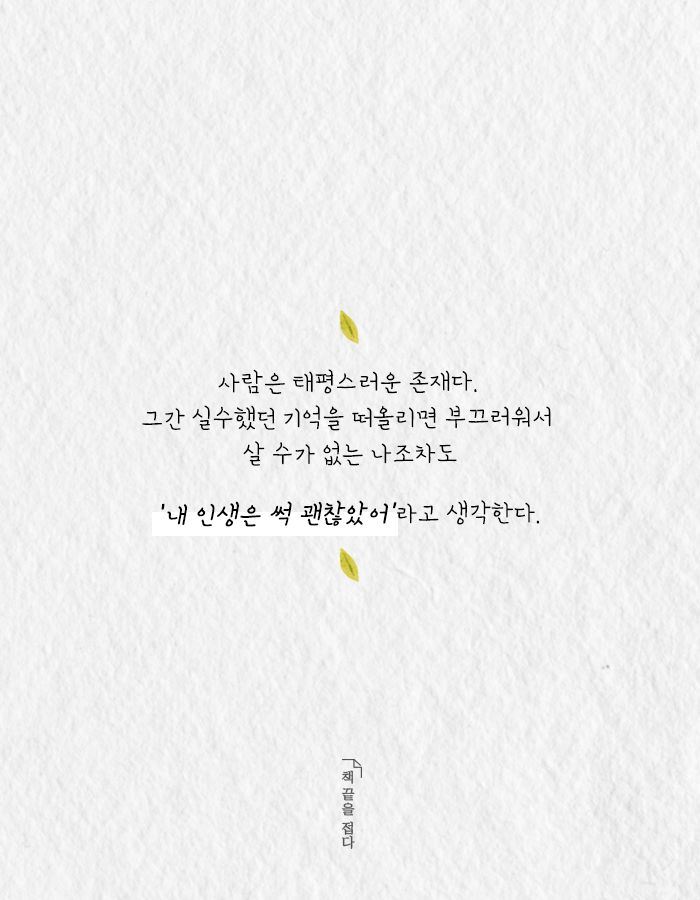 사람은 태평스러운 존재다.
그간 실수했던 기억을 떠올리면 부끄러워서
살 수가 없는 나조차도
'내 인생은 썩 괜찮았어'라고 생각한다.
책 끝을 접다